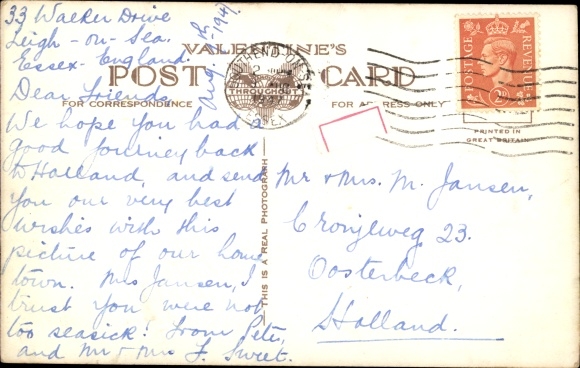 33 Walker Drive
Leigh-on-Sea.
Essex-England.
Aug. 7th-1947.
VALENTINE'S
POST CARD
FOR CORRESPONDENCE
FOR ADDRESS ONLY
Dear Friends,
We hope you had a
good journey back
to Holland, and send
you our very best
wishes with this
picture of our home
town. Mrs Jansen, I
trust you were not
too seasick! From Peter,
and Mr & Mrs F. Sweet.
THIS IS A REAL PHOTOGRAPH
SOUTHEND-ON-S
1947
THROUGHOUT
POSTAGE
REVENUE
2D
PRINTED IN
GREAT BRITAIN
Mr & Mrs. M. Jansen,
Cronjéweg 23.
Oosterbeck,
Holland.